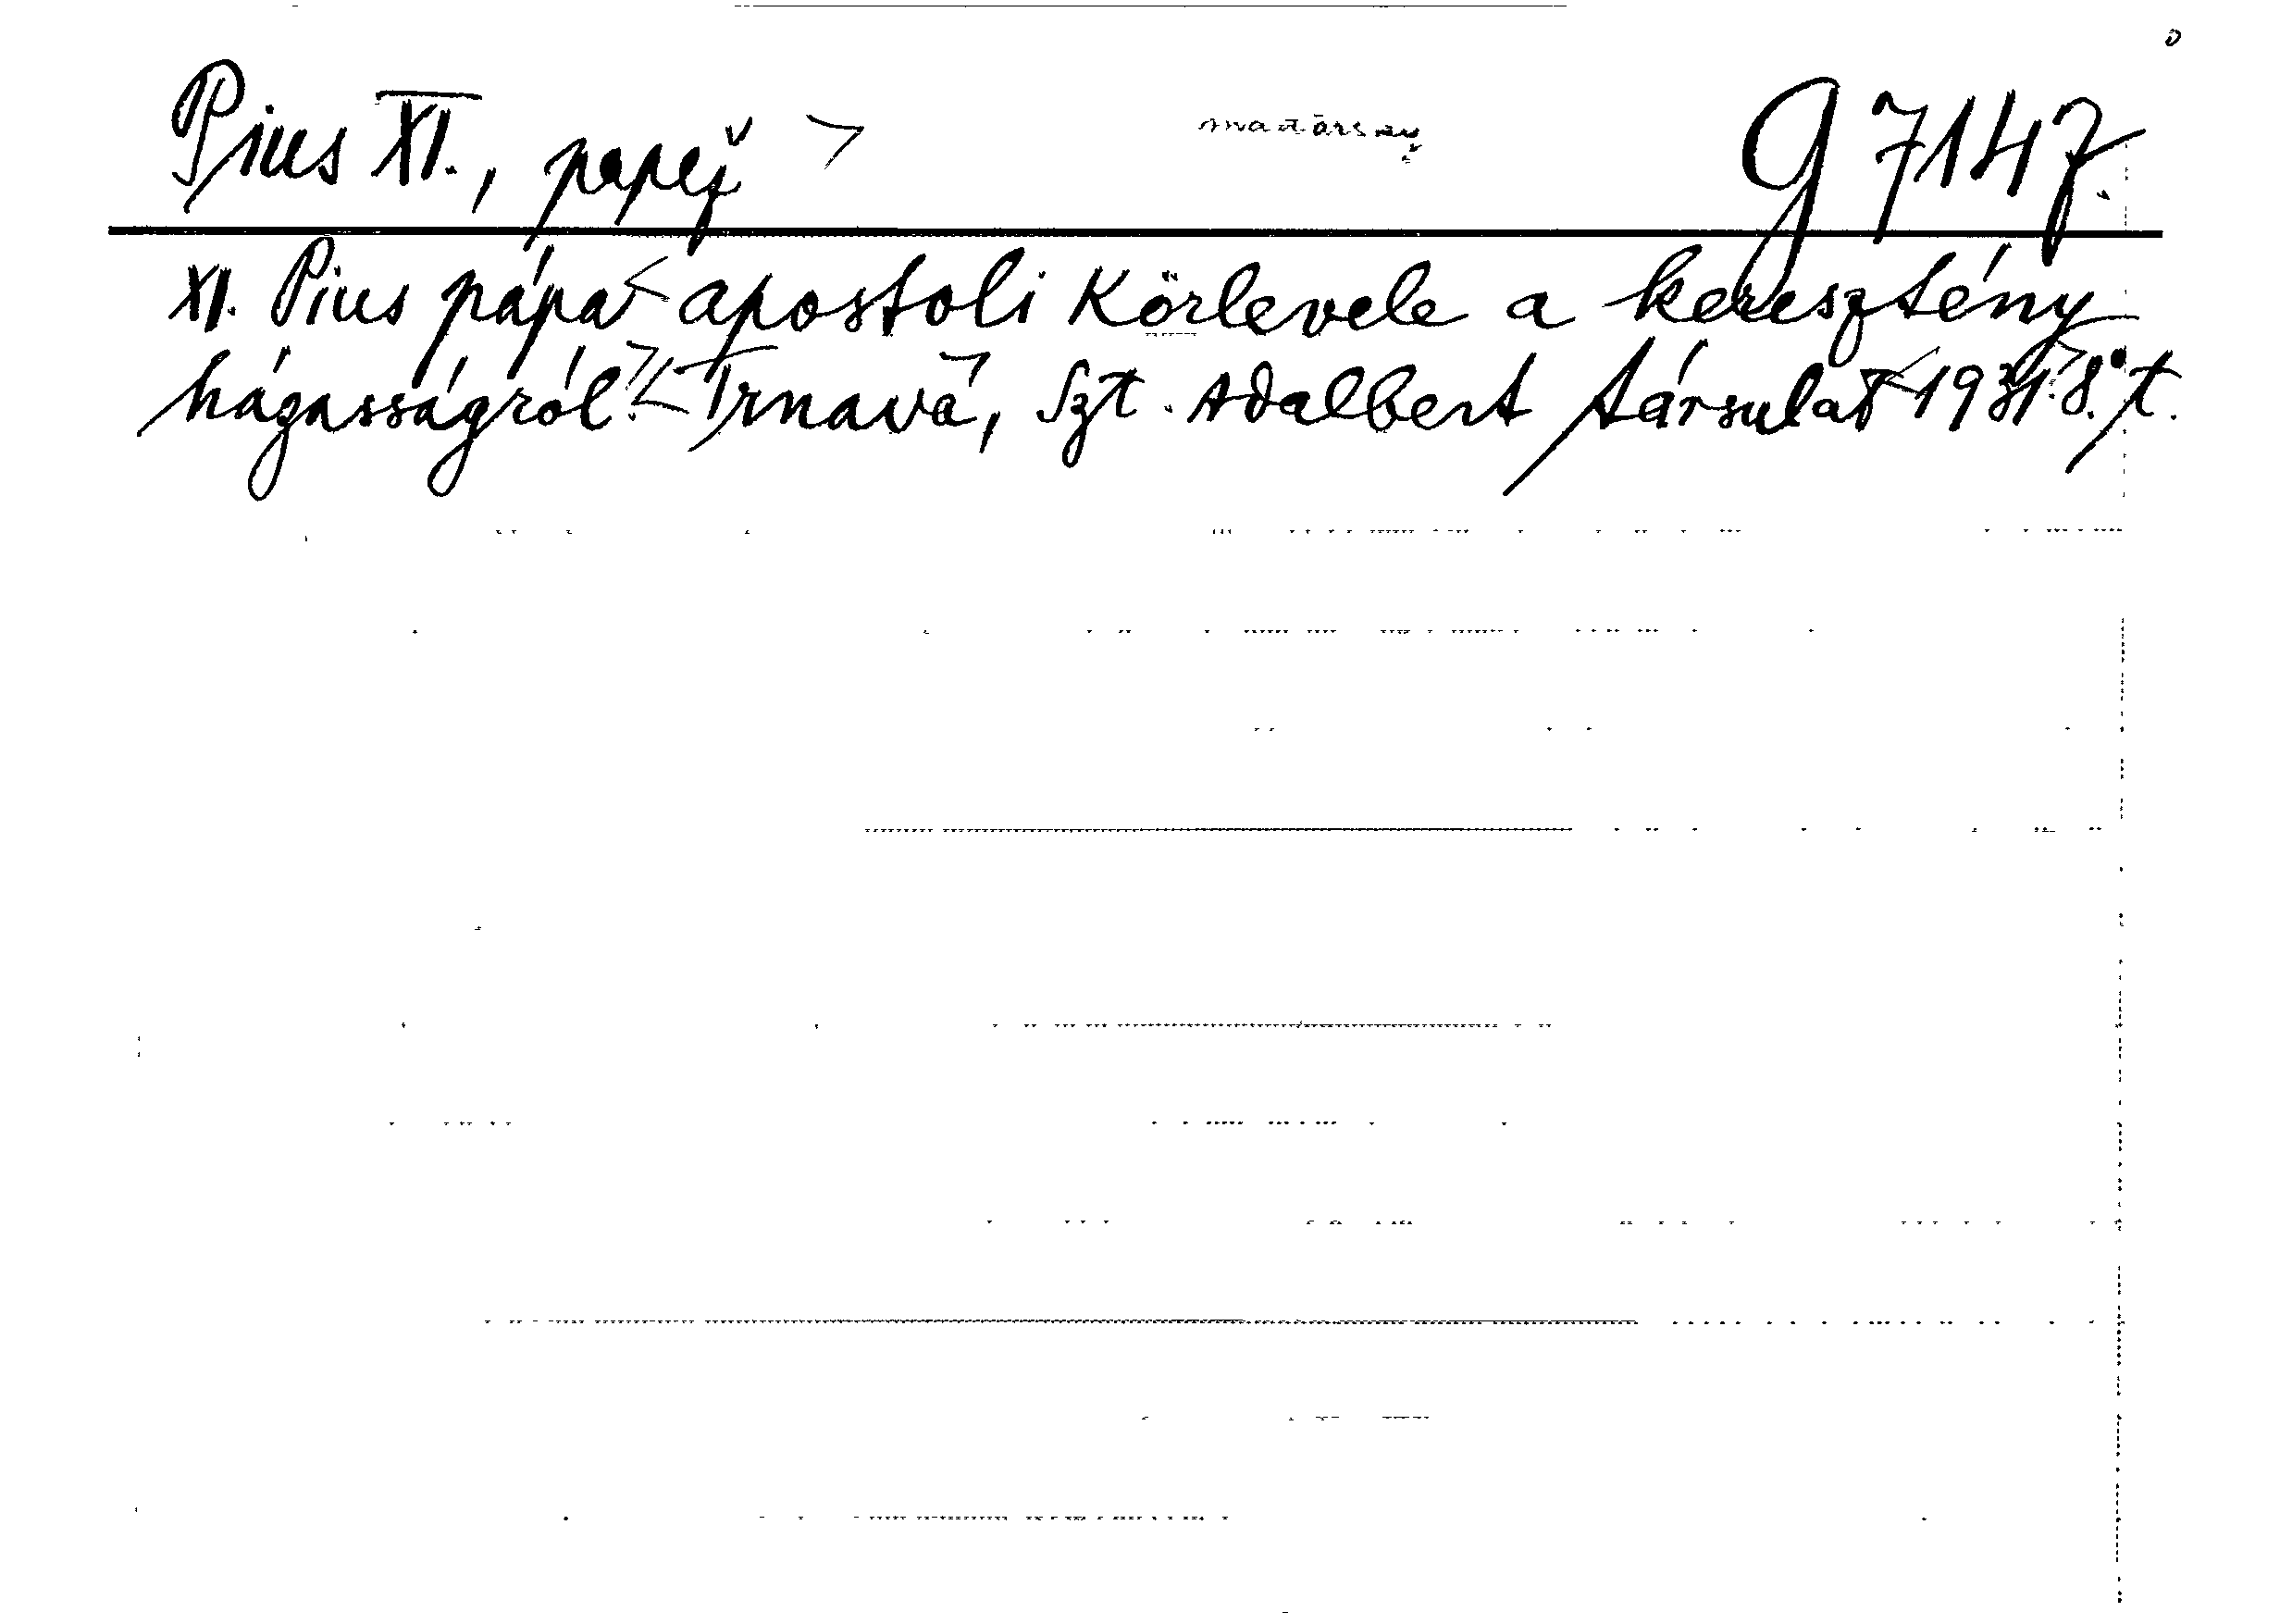 Pius XI., papež G 7147.
XI. Pius pápa apostoli Körlevele a keresztény
házasságról. Trnava, Szt. Adalbert társulat 1931. 8° t.